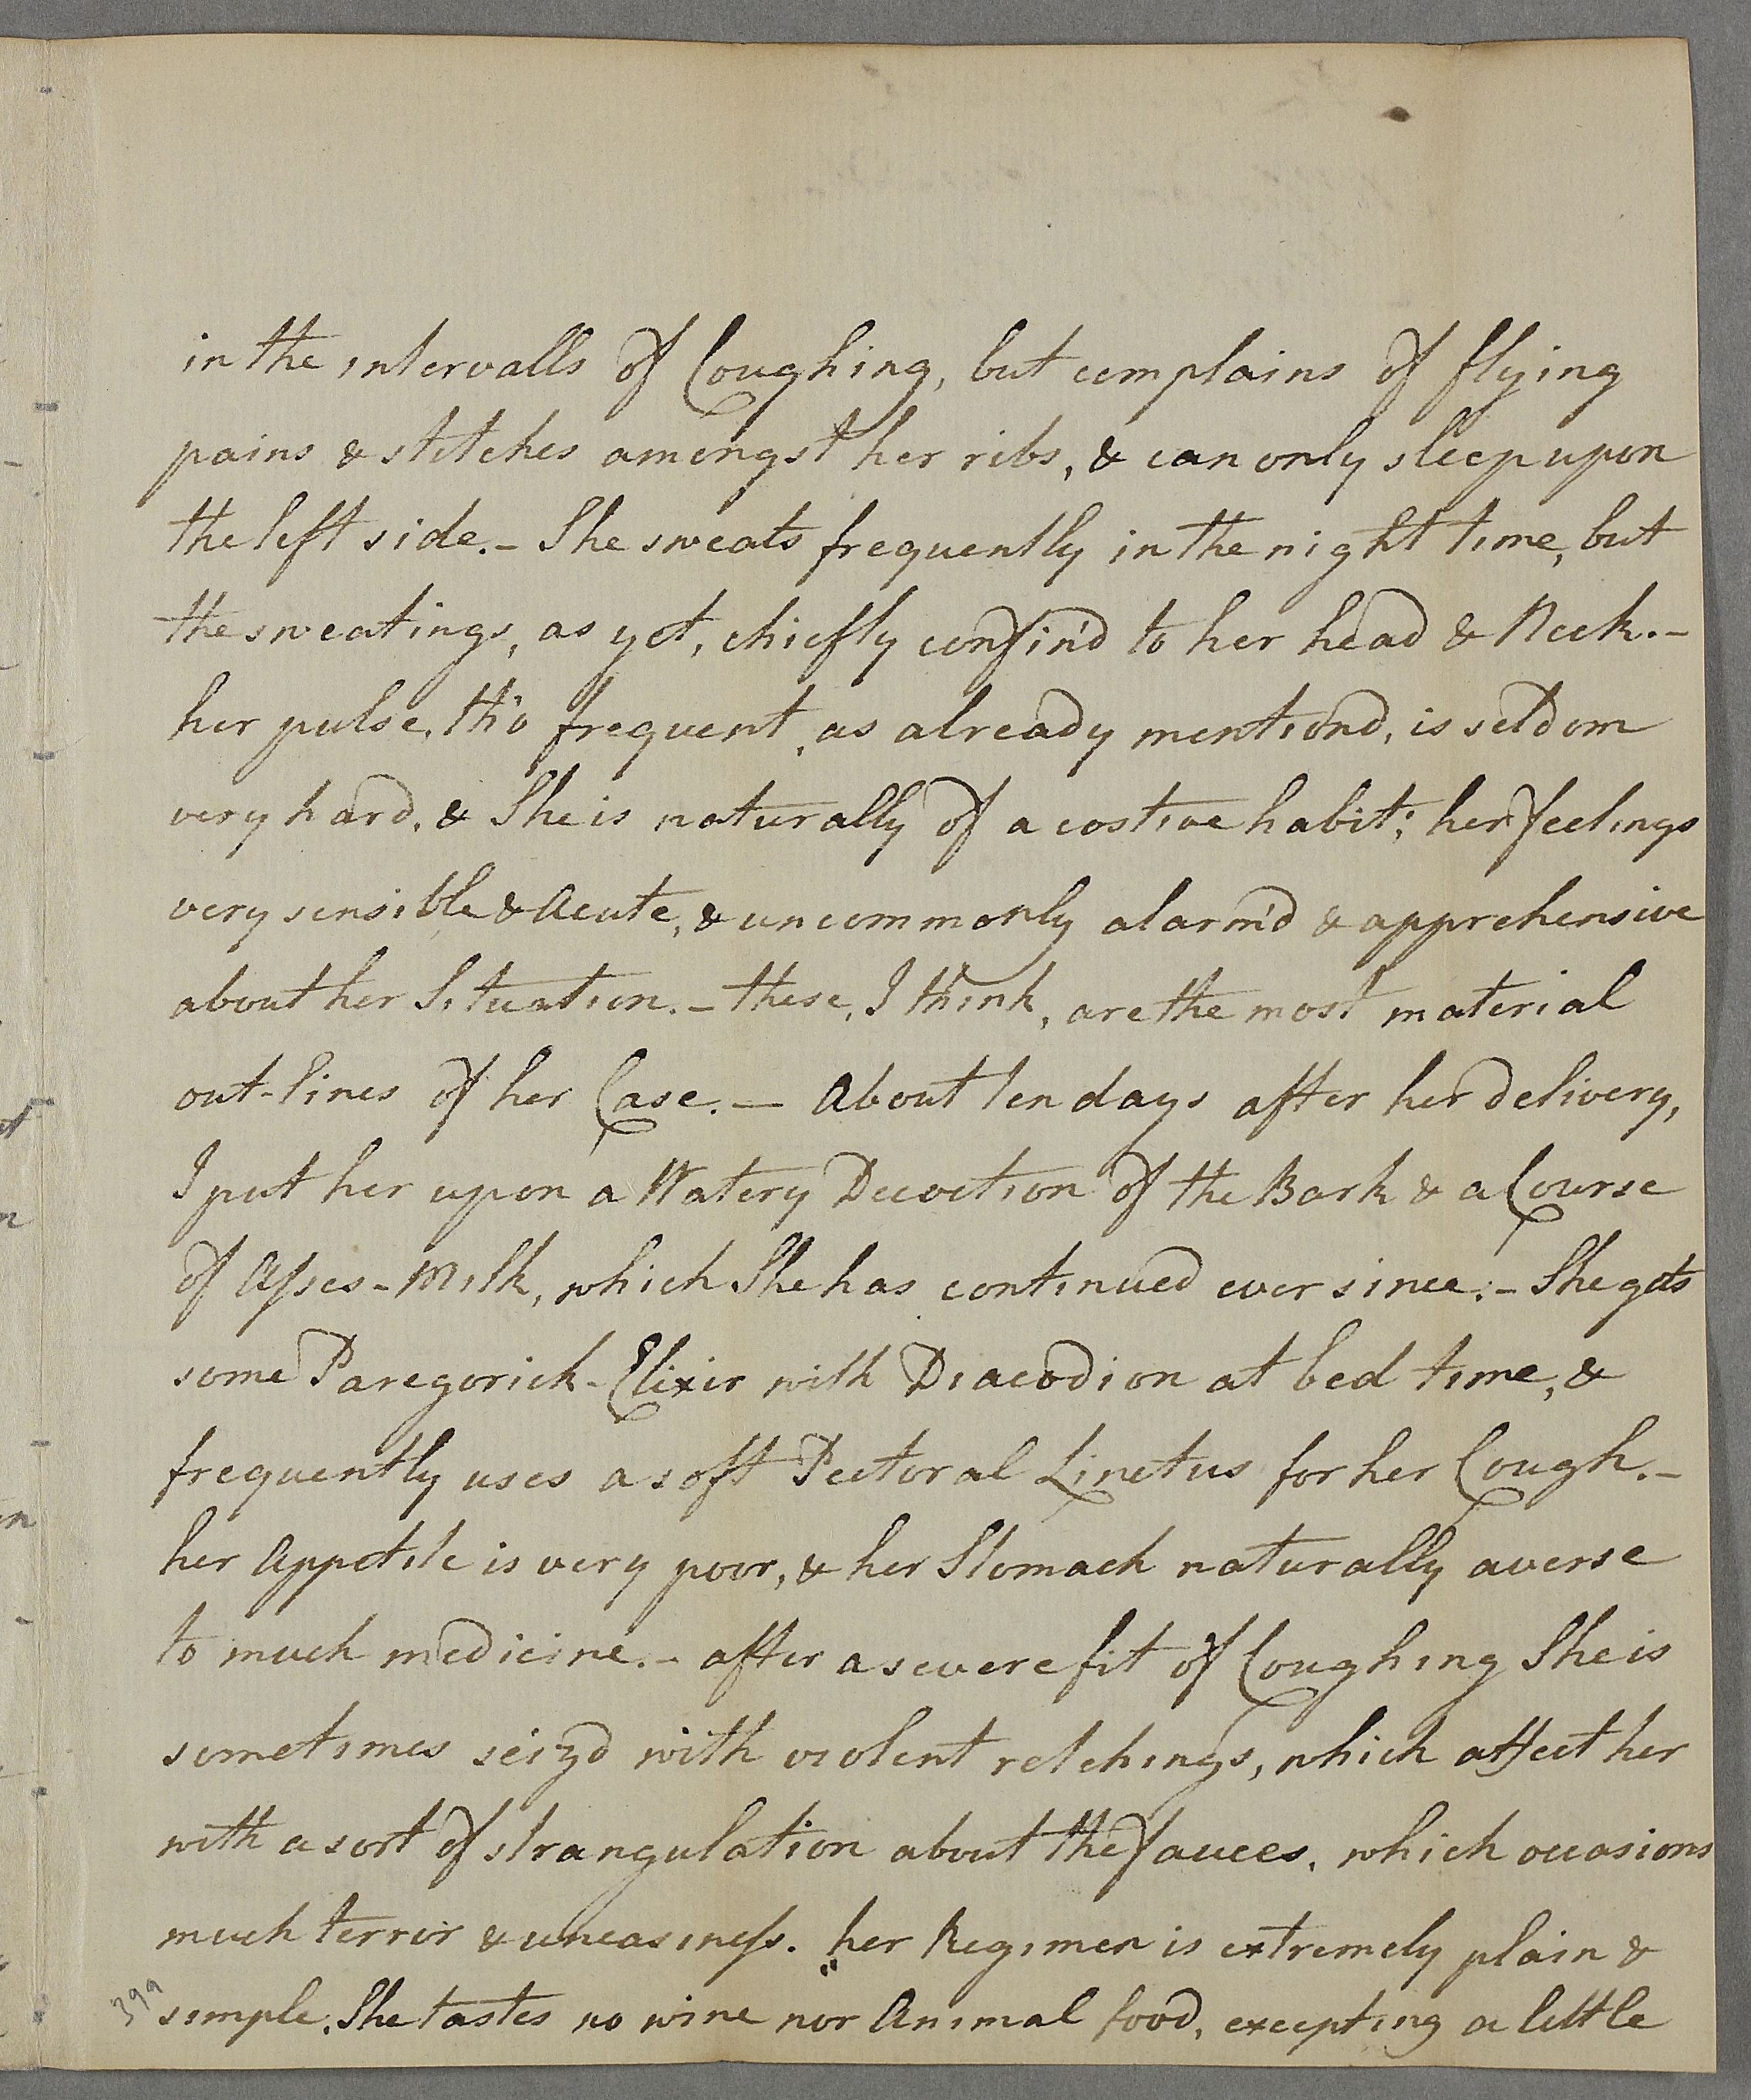 in the intervalls of Coughing, but complains of flying
pains & stitches amongst her ribs, & can only sleep upon
the left side. - She sweats frequently in the night time, but
the sweatings, as yet, chiefly confin'd to her head & Neck. -
her pulse, tho' frequent, as already mention'd, is seldom
very hard, & She is naturally of a costive habit; her feelings
very sensible & Acute, & uncommonly alarm'd & apprehensive
about her Situation. - these, I think, are the most material
out-lines of her Case. — About ten days after her delivery,
I put her upon a Watery Decoction of the Bark & a Course
of Asses-Milk, which She has continued ever since. - She gets
some Paregorick-Elixir with Diacodion at bed time, &
frequently uses a soft Pectoral Linctus for her Cough. -
her Appetite is very poor, & her Stomach naturally averse
to much medicine. - after a severe fit of Coughing She is
sometimes seiz'd with violent retchings, which affect her
with a sort of strangulation about the fauces, which occasions
much terror & uneasiness. her Regimen is extremely plain &
simple. She tastes no wine nor Animal food, excepting a little
399